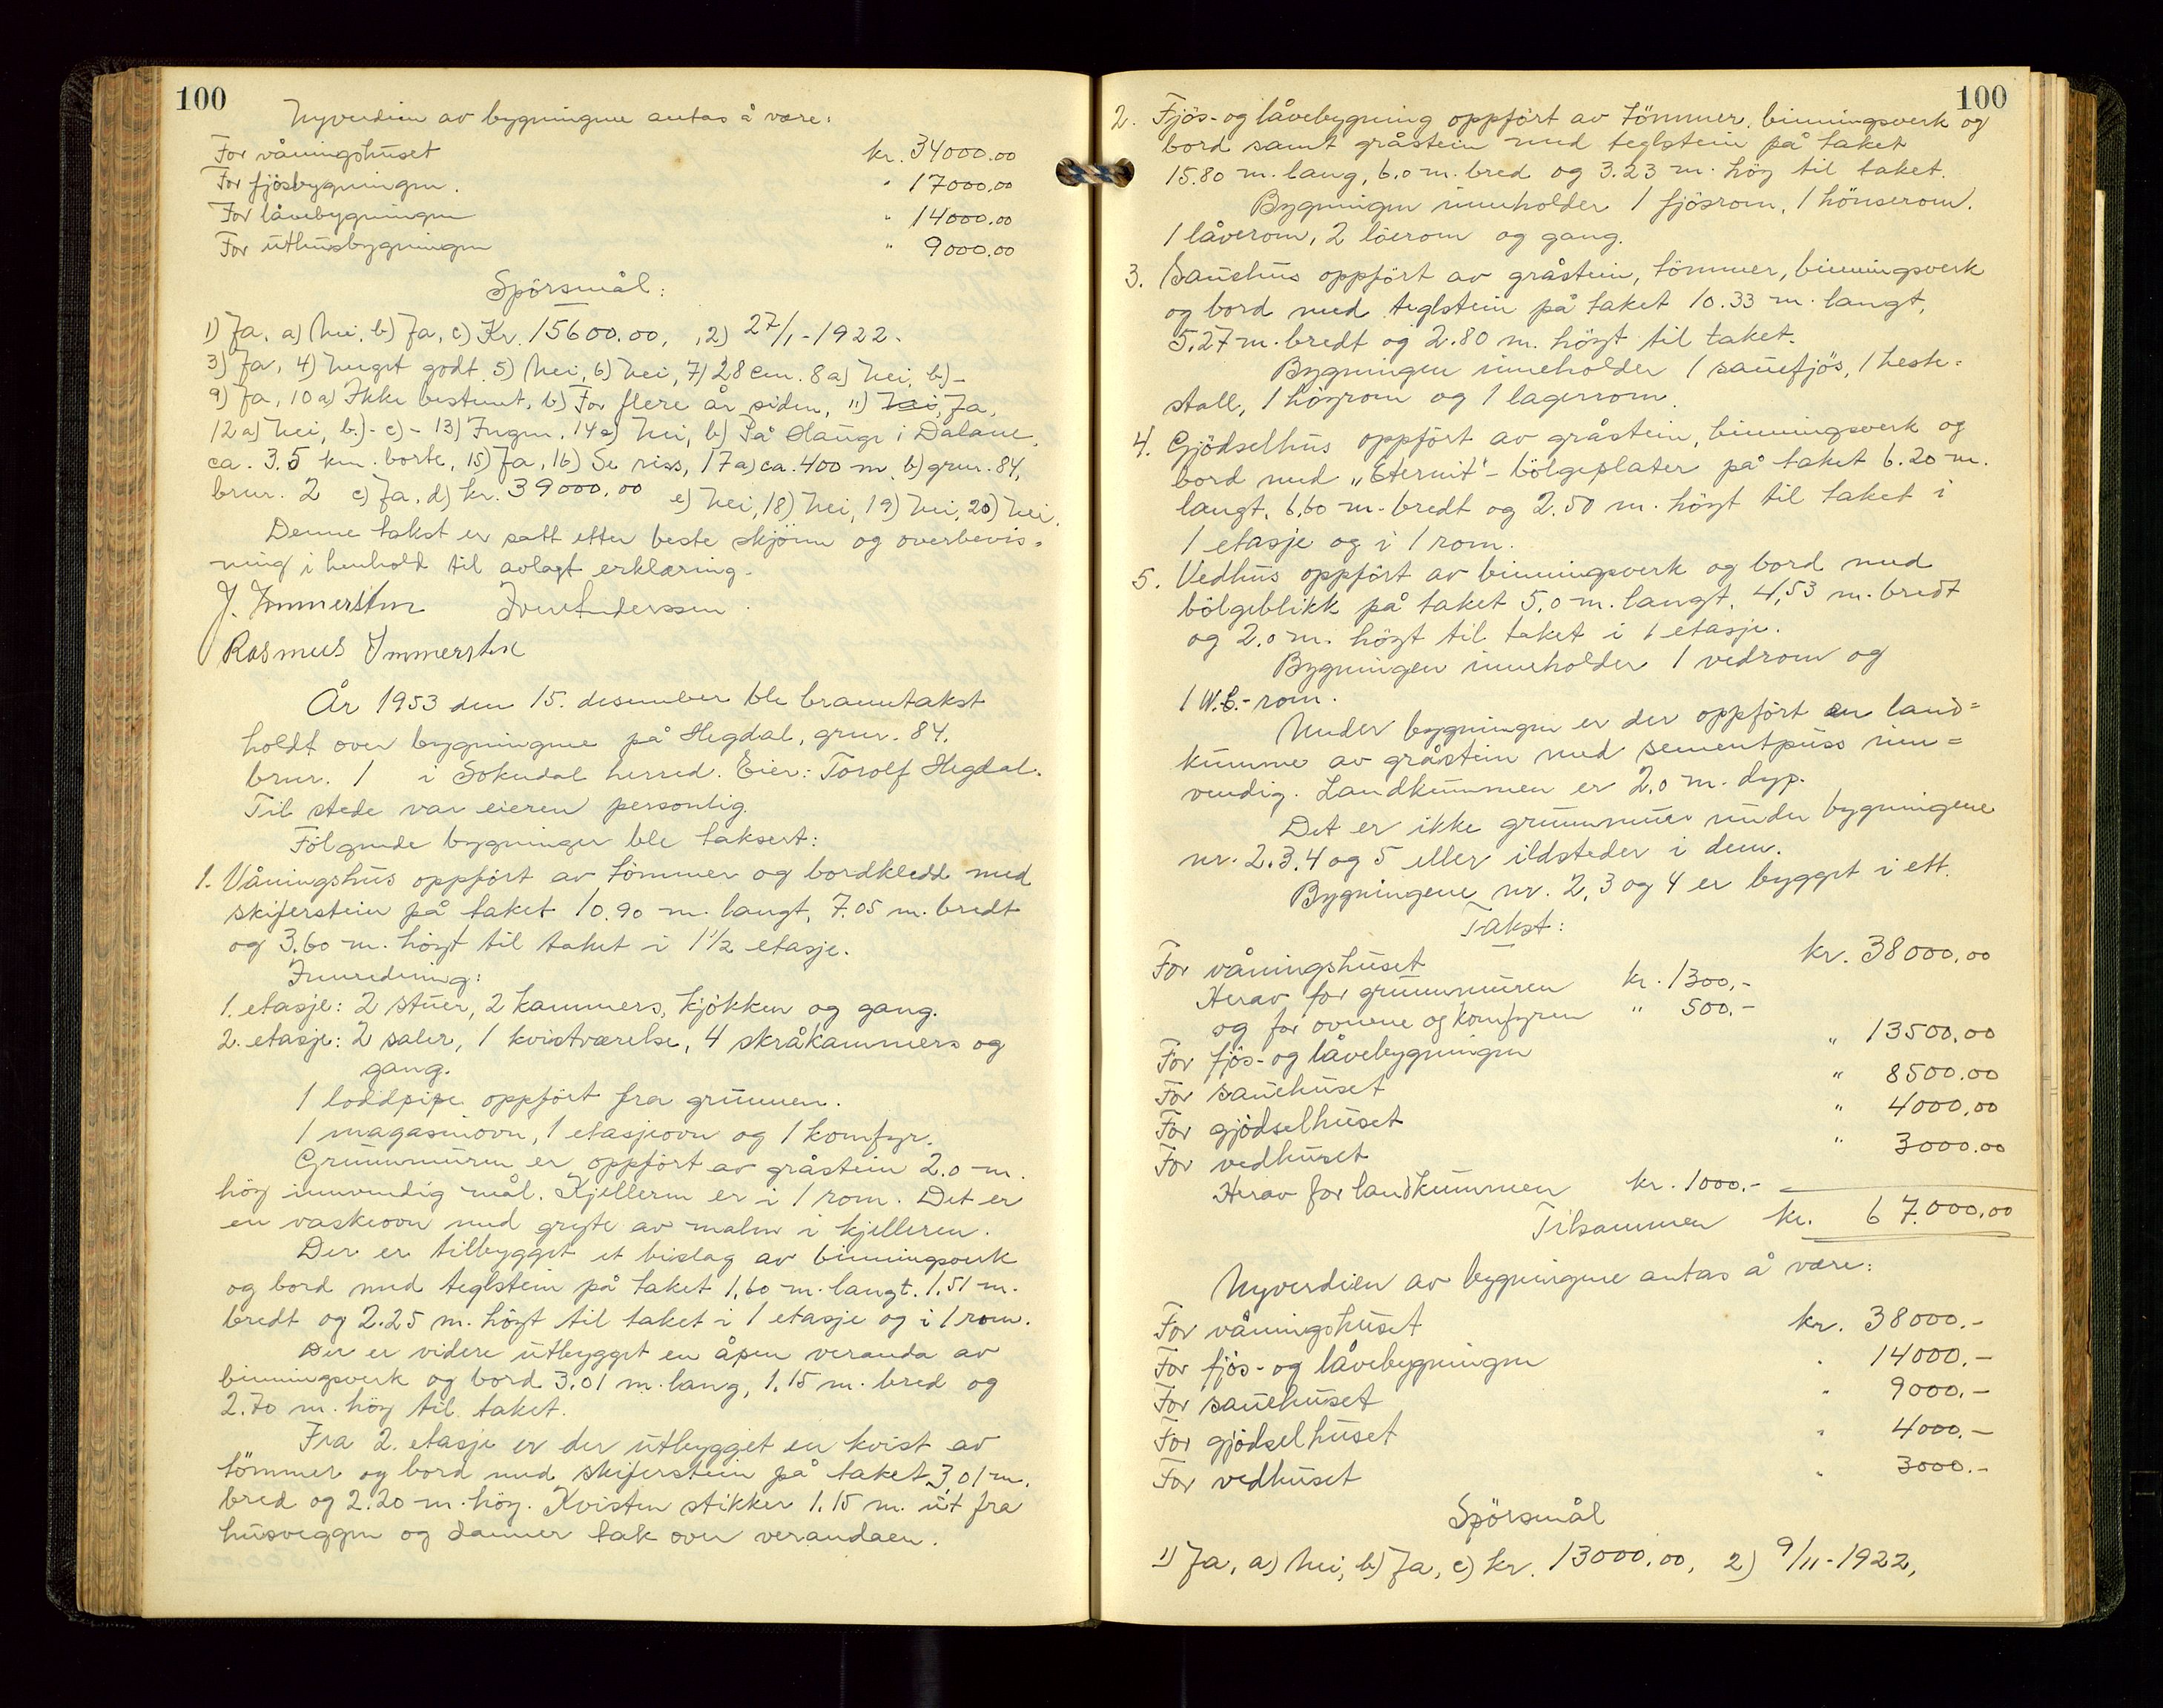 100
Nyverdien av bygningene antas å være:
For våningshuset kr. 34000.00
For fjösbygningen. " 17000.00
For låvebygningen " 14000.00
For uthusbygningen " 9000.00
Spörsmål:
1) Ja, a) Nei, b) Ja, c) Kr. 15600.00, 2) 27/1-1922.
3) Ja, 4) Meget godt 5) Nei, 6) Nei, 7) 28 cm. 8a) Nei, b) -
9) Ja, 10a) Ikke bestemt, b) For flere år siden, 11) Nei, Ja,
12a) Nei, b)- c)- 13) Ingen, 14a) Nei, b) På Hauge i Dalane,
ca. 3.5 km. borte, 15) Ja, 16) Se riss, 17a) ca. 400 m, b) gnr. 84,
bnr. 2 c) Ja, d) kr. 39000,00 e) Nei, 18) Nei, 19) Nei, 20) Nei.
Denne takst er satt etter beste skjönn og overbevis=
ning i henhold til avlagt erklæring.
J. Immerstein Iver Anderssen
Rasmus Immerstein
År 1953 den 15. desember ble branntakst
holdt over bygningene på Hegdal, gnr. 84,
bnr. 1 i Sokndal herred. Eier: Torolf Hegdal.
Til stede var eieren personlig.
Fölgende bygninger ble taksert:
1. Våningshus oppfört av tömmer og bordkledd med
skiferstein på taket 10.90 m. langt, 7.05 m. bredt
og 3.60 m. höyt til taket i 1 1/2 etasje.
Innredning:
1. etasje: 2 stuer, 2 kammers, kjökken og gang.
2. etasje: 2 saler, 1 kvistværelse, 4 skråkammers og
gang.
1 loddpipe oppfört fra grunnen.
1 magasinovn, 1 etasjeovn og 1 komfyr.
Grunnmuren er oppfört av gråstein 2.0 m.
höy innvendig mål. Kjelleren er i 1 rom. Det er
en vaskeovn med gryte av malm i kjelleren.
Der er tilbygget et bislag av binningsverk
og bord med teglstein på taket 1.60 m. langt. 1.51 m.
bredt og 2.25 m. höyt til taket i 1 etasje og i 1 rom.
Der er videre utbygget en åpen veranda av
binningsverk og bord 3.01 m. lang, 1.15 m. bred og
2.70 m. höy til taket.
Fra 2. etasje er der utbygget en kvist av
tömmer og bord med skiferstein på taket 3,01 m.
bred og 2.20 m. höy. Kvisten stikker 1.15 m. ut fra
husveggen og danner tak over verandaen.
100
2. Fjös- og låvebygning oppfört av tömmer, binningsverk og
bord samt gråstein med teglstein på taket
15.80 m. lang, 6.0 m. bred og 3.23 m. höy til taket.
Bygningen inneholder 1 fjösrom, 1 hönserom.
1 låverom, 2 löerom og gang.
3. Sauehus oppfört av gråstein, tömmer, binningsverk
og bord med teglstein på taket 10.33 m. langt,
5,27 m. bredt og 2.80 m. höyt til taket.
Bygningen inneholder 1 sauefjös, 1 heste=
stall, 1 höyrom og 1 lagerrom.
4. Gjödselhus oppfört av gråstein, binningsverk og
bord med „Eternit"- bölgeplater på taket 6.20 m.
langt, 6,60 m. bredt og 2.50 m. höyt til taket i
1 etasje og i 1 rom.
5. Vedhus oppfört av binningsverk og bord med
bölgeblikk på taket 5,0 m. langt, 4,53 m. bredt
og 2.0 m. höyt til taket i 1 etasje.
Bygningen inneholder 1 vedrom og
1 W.C.-rom.
Under bygningen er der oppfört en land=
kumme av gråstein med sementpuss inn=
vendig. Landkummen er 2,0 m. dyp.
Det er ikke grunnmur under bygningene
nr. 2.3.4 og 5 eller ildsteder i dem.
Bygningene nr. 2, 3 og 4 er bygget i ett.
Takst:
For våningshuset kr. 38000,00
Herav for grunnmuren kr. 1300,-
og for ovnene og komfyren " 500,-
For fjös- og låvebygningen " 13500.00
For sauehuset " 8500.00
For gjödselhuset " 4000,00
For vedhuset " 3000.00
Herav for landkummen kr. 1000.-
Tilsammen kr. 67.000,00
Nyverdien av bygningene antas å være:
For våningshuset kr. 38000.-
For fjös- og låvebygningen " 14000.-
For sauehuset " 9000.-
For gjödselhuset " 4000.-
For vedhuset " 3000.-
Spörsmål
1) Ja, a) Nei, b) Ja, c) kr. 13000.00, 2) 9/11-1922,